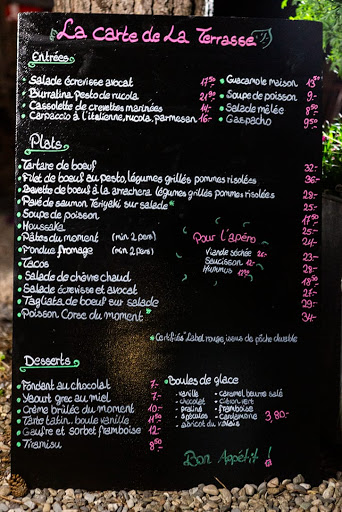 La Carte de La Terrasse
Entrées
Salade écrevisse avocat 17.50
Burratina, pesto de rucola 21.50
Cassolette de crevettes marinées 14.-
Carpaccio à l'italienne, rucola, parmesan 16.-
Guacamole maison 13.50
Soupe de poisson 9.-
Salade mêlée 8.50
Gaspacho 9.50
Plats
Tartare de boeuf 32.-
Filet de boeuf au pesto, légumes grillés pommes rissolées 36.-
Bavette de boeuf à la arrachera légumes grillés pommes rissolées 29.-
Pavé de saumon Teriyaki sur salade* 25.-
Soupe de poisson 17.50
Moussaka 25.-
Pâtes du moment (min 2 pers) 24.-
Fondue fromage (min. 2 pers)
Tacos
Salade de chèvre chaud
Salade écrevisse et avocat
Tagliata de boeuf sur salade 29.-
Poisson Corse du moment * 34.-
Pour l'apéro
Viande séchée
Saucisson
Hummus
*Certifiés "Label rouge, issus de pêche durable
Desserts
Fondant au chocolat 7.-
Yaourt grec au miel 7.-
Crème brûlée du moment 10.-
Tarte tatin, boule vanille 11.-
Gaufre et sorbet framboise 12.-
Tiramisu 8.50
Boules de glace
- vanille - caramel beurre salé
- chocolat - citron vert
- praliné - framboise
- spéculos - cardamome 3,80.-
- abricot du valais
Bon Appétit !